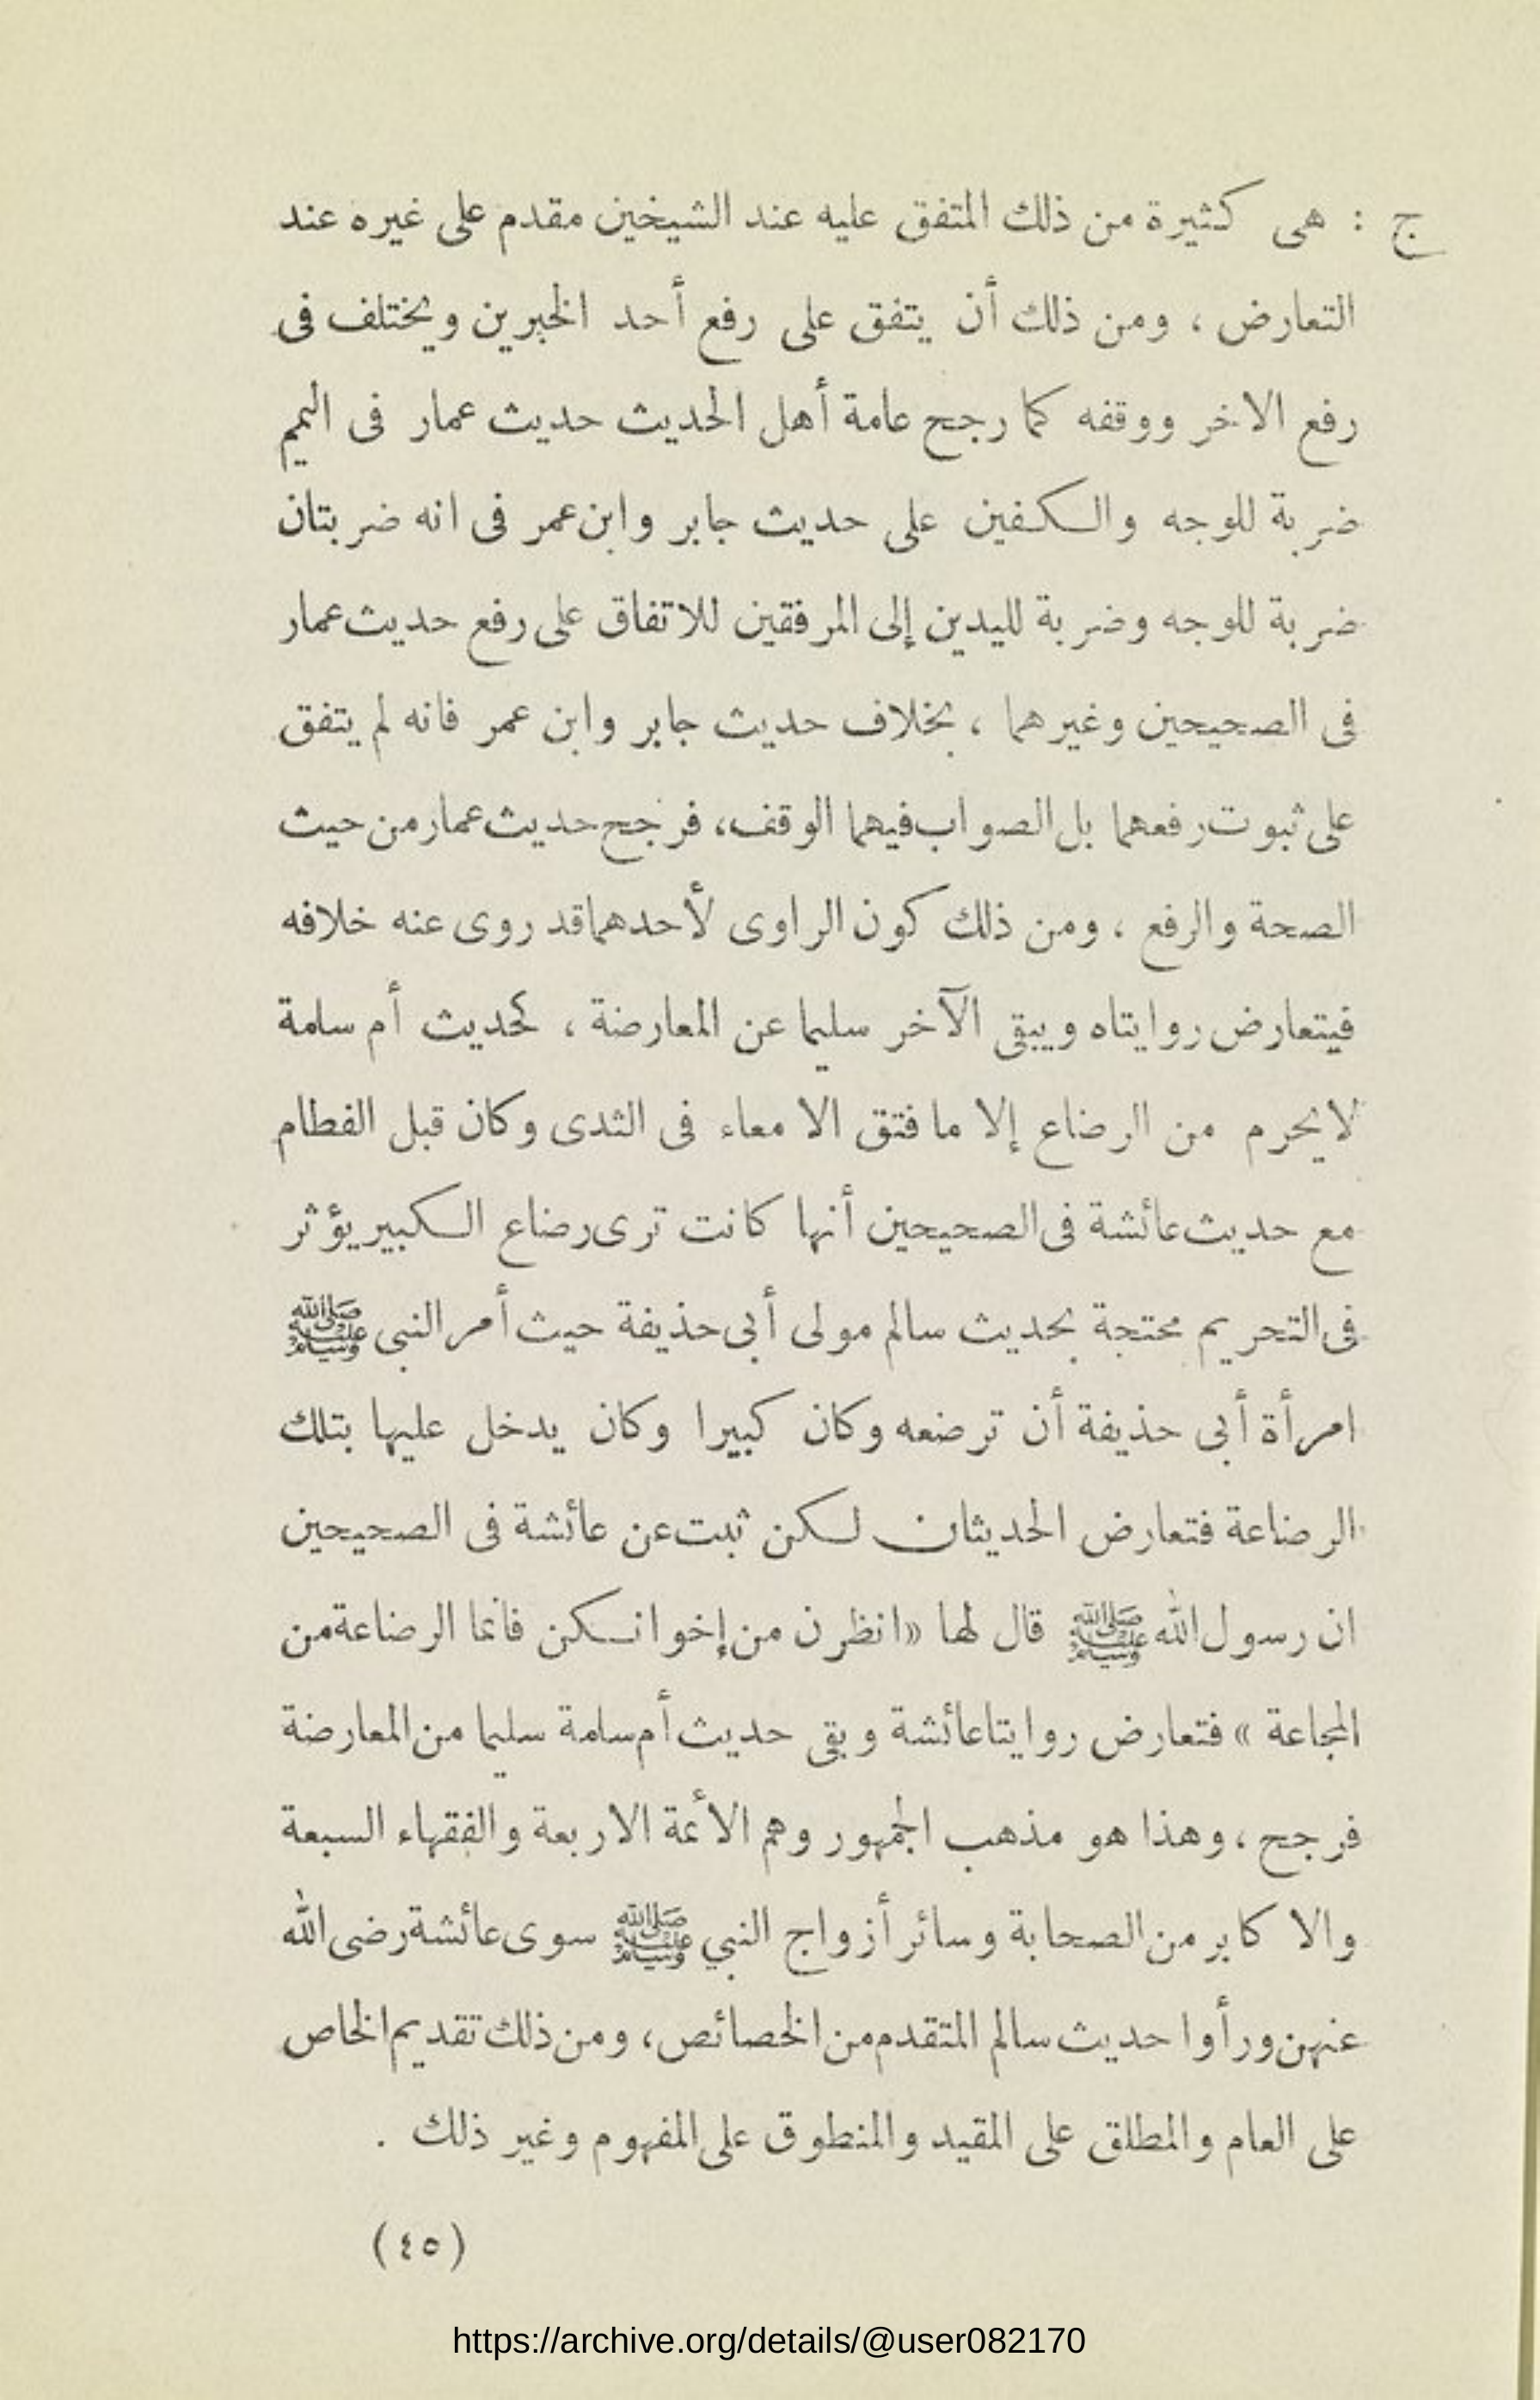 ج : هى كثيرة من ذلك المتفق عليه عند الشيخين مقدم على غيره عند
التعارض ، ومن ذلك أن يتفق على رفع أحد الخبرين ويختلف فى
رفع الاخر ووقفه كما رجح عامة أهل الحديث حديث عمار فى التيمم
ضربة للوجه والكفين على حديث جابر وابن عمر فى انه ضربتان
ضربة للوجه وضربة لليدين إلى المرفقين للاتفاق على رفع حديث عمار
فى الصحيحين وغيرهما ، بخلاف حديث جابر وابن عمر فانه لم يتفق
على ثبوت رفعهما بل الصواب فيهما الوقف، فرجح حديث عمار من حيث
الصحة والرفع ، ومن ذلك كون الراوى لأحدهما قد روى عنه خلافه
فيتعارض روايتاه ويبقى الآخر سليما عن المعارضة ، كحديث أم سلمة
لا يحرم من الرضاع إلا ما فتق الامعاء فى الثدى وكان قبل الفطام
مع حديث عائشة فى الصحيحين أنها كانت ترى رضاع الكبير يؤثر
فى التحريم محتجة بحديث سالم مولى أبى حذيفة حيث أمر النبى ﷺ
امرأة أبى حذيفة أن ترضعه وكان كبيرا وكان يدخل عليها بتلك
الرضاعة فتعارض الحديثان لكن ثبت عن عائشة فى الصحيحين
ان رسول الله ﷺ قال لها «انظرن من إخوانكن فانما الرضاعة من
المجاعة » فتعارض روايتا عائشة وبقى حديث أم سلمة سليما من المعارضة
فرجح ، وهذا هو مذهب الجمهور وهم الأئمة الاربعة والفقهاء السبعة
والاكابر من الصحابة وسائر أزواج النبي ﷺ سوى عائشة رضى الله
عنهن ورأوا حديث سالم المتقدم من الخصائص، ومن ذلك تقديم الخاص
على العام والمطلق على المقيد والمنطوق على المفهوم وغير ذلك .
(٤٥)
https://archive.org/details/@user082170